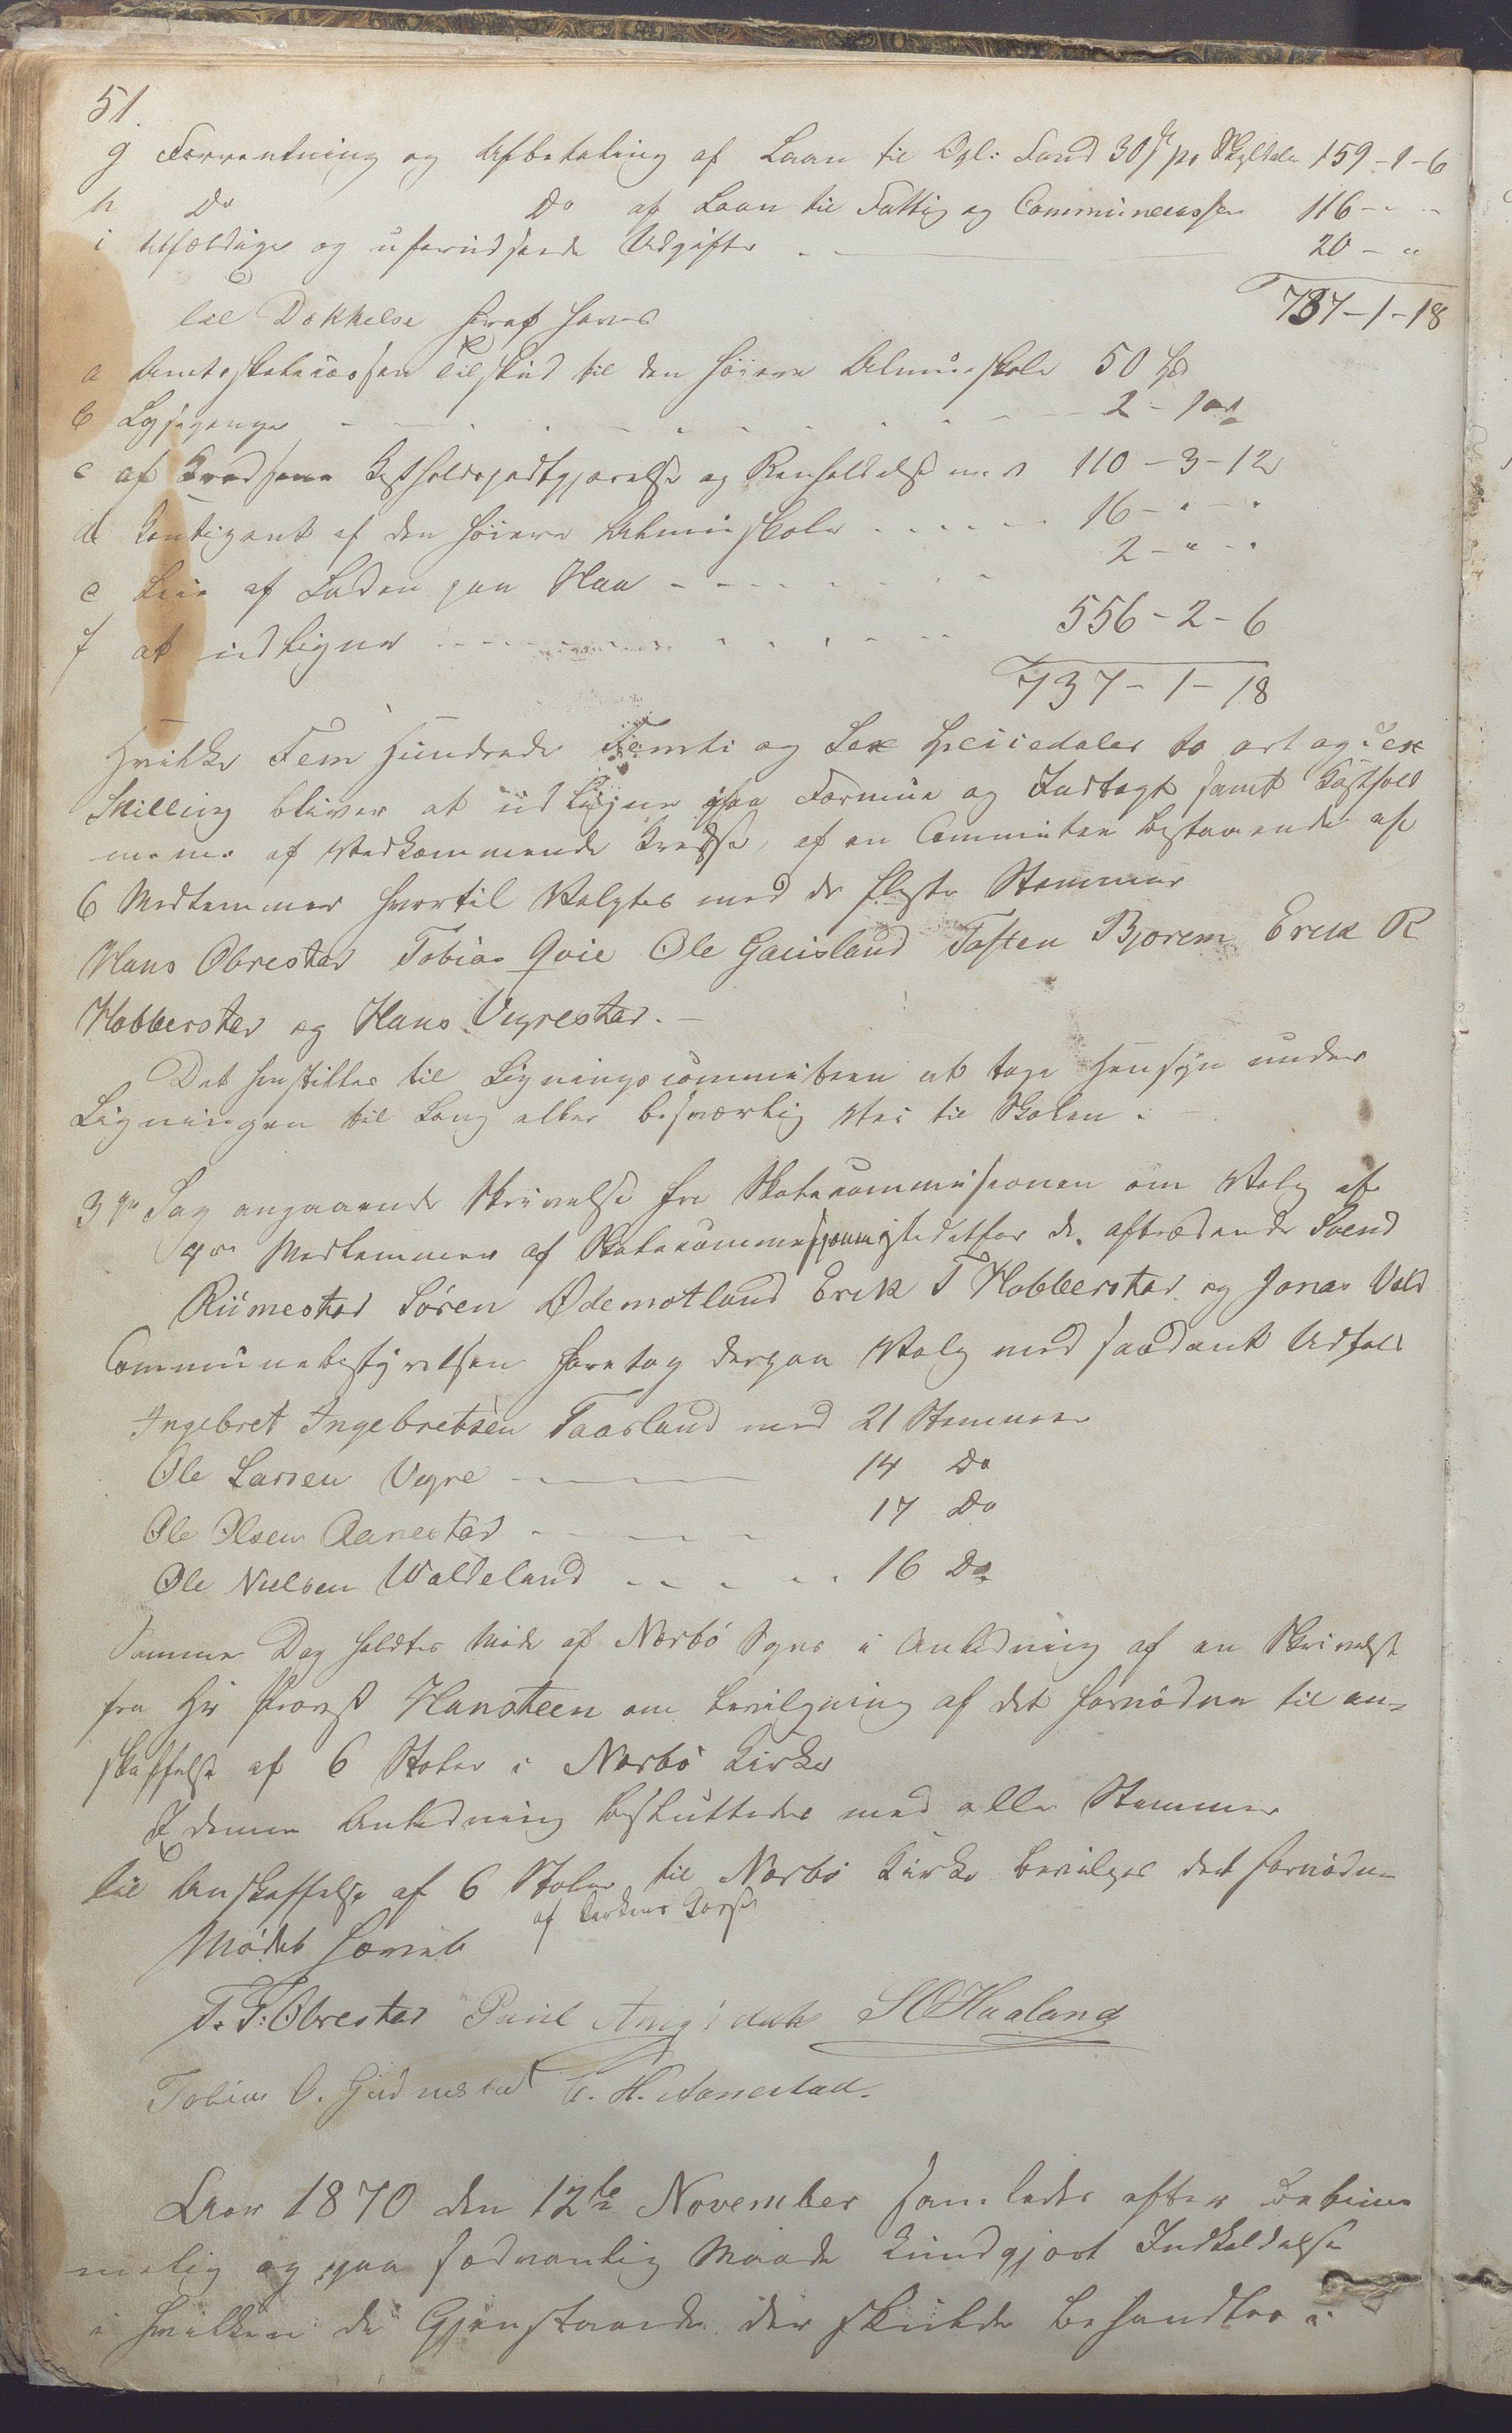 51.
g Forrentning og Afbetaling af Laan til Opl: Fond 30 ß pr Skylddaler 159-1-6
h Do Do af Laan til Fattig og Communecassen 116 - " -
i tilfældige og uforudseede Udgifter 20 - "
737-1-18
til Dækkelse heraf haves
a Amtsskolecassen Tilskud til den høiere Almueskole 50 Spd
b Lysepenge 2 - " - "
c af Kredsene Kostholdsgodtgjørelse og Renholdelse m. v 110 - 3 - 12
d Contigent af den høiere Almueskole 16 - " - "
e Leie af Laden paa Haa 2 - " - "
f at udligne 556 - 2 - 6
737 - 1 - 18
Hvilke Fem Hundrede Femti og Sex Speciedaler to ort og sex
Skilling bliver at udligne paa Formue og Indtægt samt Kosthold
m. m. af Vedkommende Kredse, af en Committee bestaaende af
6 Medlemmer hvortil Valgtes med de fleste Stemmer
Hans Obrestad Tobias Qvie Ole Gausland Torsten Bjorem Erik R
Hobberstad og Hans Vigrestad. -
Det henstilles til Ligningscommiteen at tage Hensyn under
Ligningen til Lang eller besværlig Vei til Skolen.
3die Sag angaaende Skrivelse fra Skolecommissionen om Valg af
4re Medlemmer af Skolecommissionen istedetfor de aftrædende Svend
Riimestad Søren Ødemotland Erik T Hobberstad og Jonas Vold
Communebestyrelsen foretog derpaa Valg med saadant Udfald
Ingebret Ingebretsen Taarland med 21 Stemmer
Ole Larsen Vigre 14 Do
Ole Olsen Aanestad 17 Do
Ole Nielsen Waldeland 16 Do
Samme Dag holdtes Møde af Nærbø Sogn i Anledning af en Skrivelse
fra Hr Provst Hansteen om bevilgning af det fornødne til an-
skaffelse af 6 Stoler i Nærbø Kirke
I denne Anledning besluttedes med alle Stemmer
til Anskaffelse af 6 Stoler til Nærbø Kirke bevilges det fornødne
af Kirkens Casse
Mødet hævet
T. T. Obrestad Paul S O Haaland
Tobias O. H. Aanestad.
Aar 1870 den 12te November samledes efter betime
melig og paa sædvanlig Maade kundgjort Indkaldelse
i hvilken de Gjenstande der skulde behandles